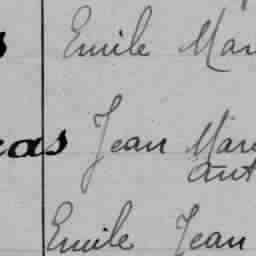 Emile Mar
Jean Mar
ant
Emile Jean